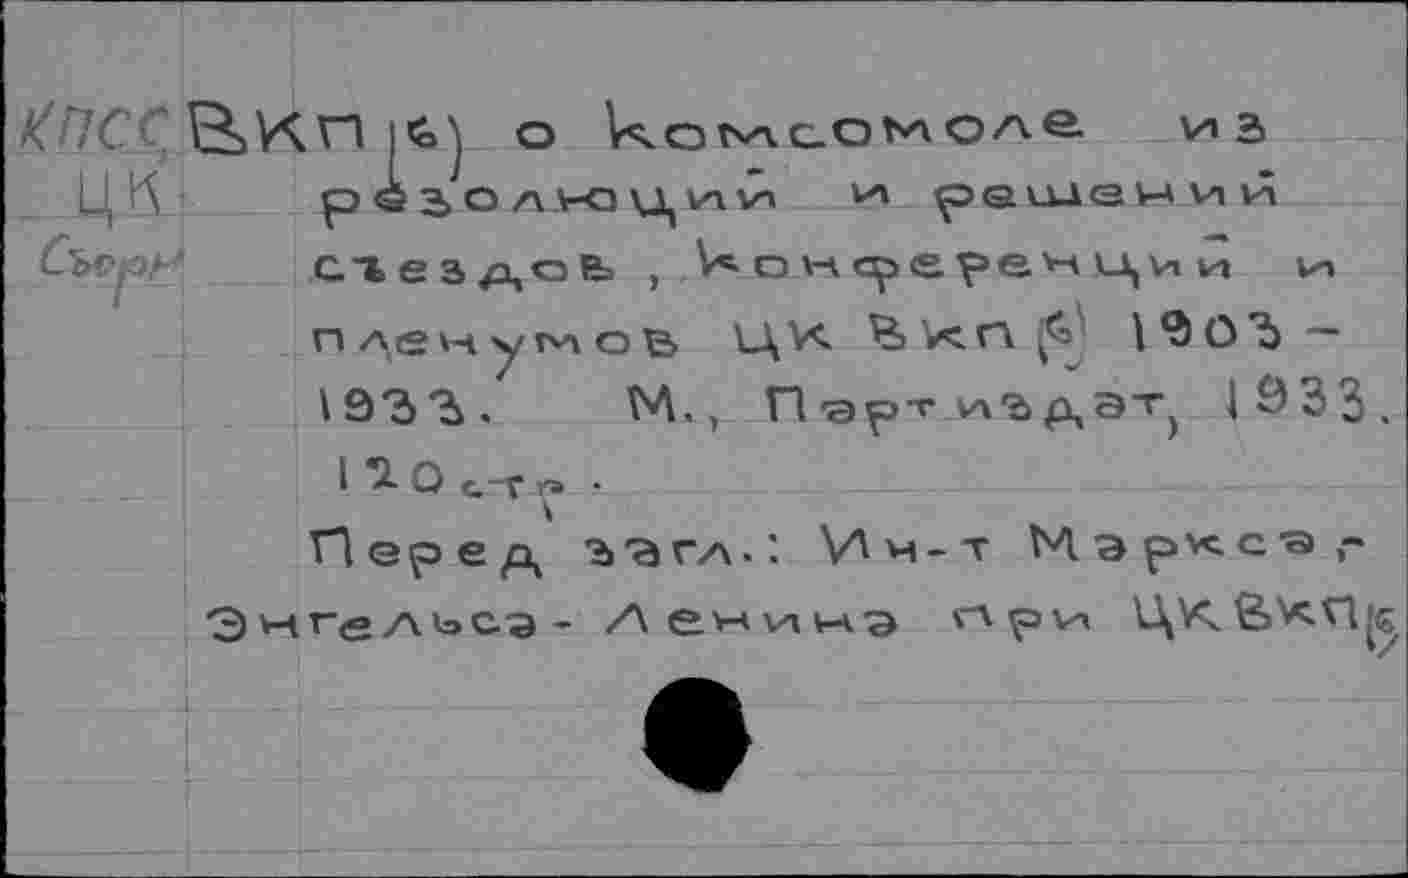 КПСС, ВКП(б) о комсомоле из
ЦК. резолюций и решений
съездов, конференций и
пленумов ЦК ВКП(б) 1903-
1933. М., Партиздат, 1933.
120 стр.
Перед загл.: Ин-т Маркса-
Энгельса-Ленина при ЦК ВКП(б